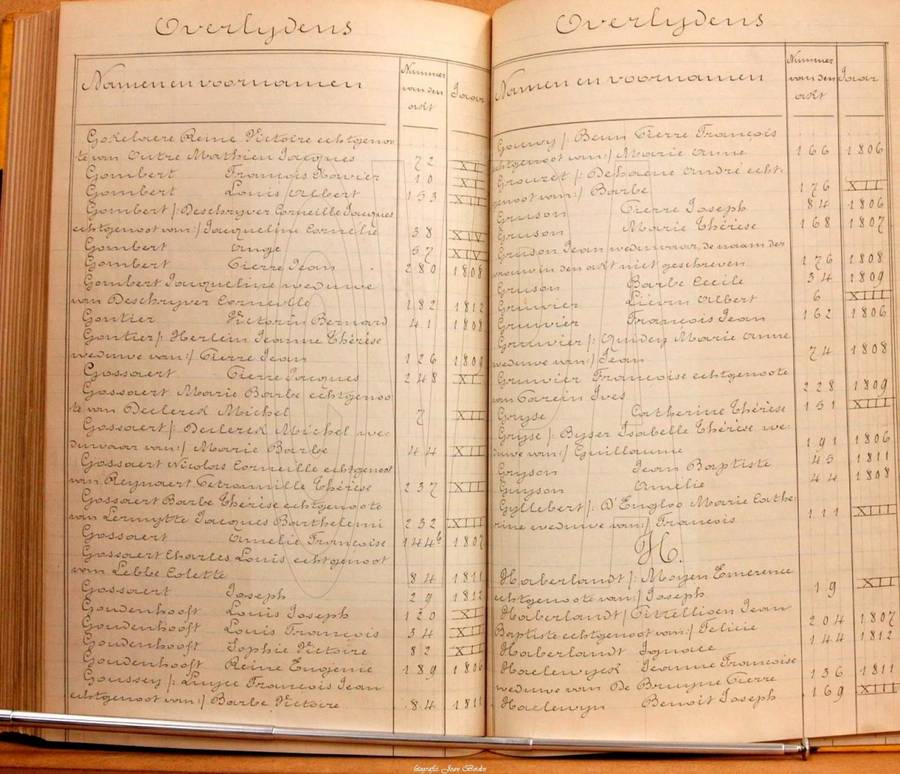 Overlijdens
Namen en voornamen Nummer van den akt Jaar
Gokelaere Reine Victoire echtgeno
te van Outre Mathieu Jacques 72 XI
Gombert François Xavier 10 XI
Gombert Louis Albert 153 XII
Gombert /: Deschryver Corneille Jacques
echtgenoot van :/ Jacqueline Cornelie 38 XIV
Gombert Ange 57 XIV
Gombert Pierre Jean 280 1808
Gombert Jacqueline weduwe
van Deschryver Corneille 182 1812
Gontier Victorin Bernard 41 1808
Gontier /: Herlein Jeanne Thérèse
weduwe van :/ Pierre Jean 126 1809
Gossaert Pierre Jacques 248 XI
Gossaert Marie Barbe echtgenoo
te van Declerck Michel 7 XII
Gossaert /: Declerck Michel we
duwaar van :/ Marie Barbe 44 XII
Gossaert Nicolas Corneille echtgenoot
van Reynaert Petronille Thérèse 237 XII
Gossaert Barbe Thérèse echtgenoote
van Lermytte Jacques Barthelemi 232 XIII
Gossaert Amelie Françoise 144b 1807
Gossaert Charles Louis echtgenoot
van Lebbe Colette 84 1811
Gossaert Joseph 29 1812
Goudenhooft Louis Joseph 120 XI
Goudenhooft Louis François 34 XII
Goudenhooft Sophie Victoire 82 XII
Goudenhooft Reine Eugenie 189 1806
Goussey /: Luyce François Jean
echtgenoot van :/ Barbe Victoire 84 1811
Overlijdens
Namen en voornamen Nummer van den akt Jaar
/: Beun Pierre François
echtgenoot van :/ Marie Anne 166 1806
/: Dehaene André echt
genoot van :/ Barbe 176 XII
Gruson Pierre Joseph 84 1806
Gruson Marie Thérèse 168 1807
Gruson Jean weduwaar, de naam der
vrouw in den akt niet geschreven 176 1808
Gruson Barbe Cecile 34 1809
Gruwier Liévin Albert 6 XIII
Gruwier François Jean 162 1806
Gruwier /: Marie Anne
weduwe van :/ Jean 74 1808
Gruwier Françoise echtgenoote
van Carein Ives 228 1809
Gryse Catherine Thérèse 151 XIII
Gryse /: Byser Isabelle Thérèse we
duwe van :/ Guillaume 191 1806
Gryson Jean Baptiste 45 1811
Guyson Amélie 44 1808
Gyllebert /: D'Engloo Marie Cathe
rine weduwe van :/ François 111 XIII
H.
Haberlandt /: Moyen Emerence
echtgenoote van :/ Joseph 19 XII
Haberlandt / Jean
Baptiste echtgenoot van :/ Felicie 204 1807
Haberlandt Ignace 144 1812
Haelewyck Jeanne Françoise
weduwe van De Bruyne Pierre 136 1811
Haelewyn Benoit Joseph 169 XIII